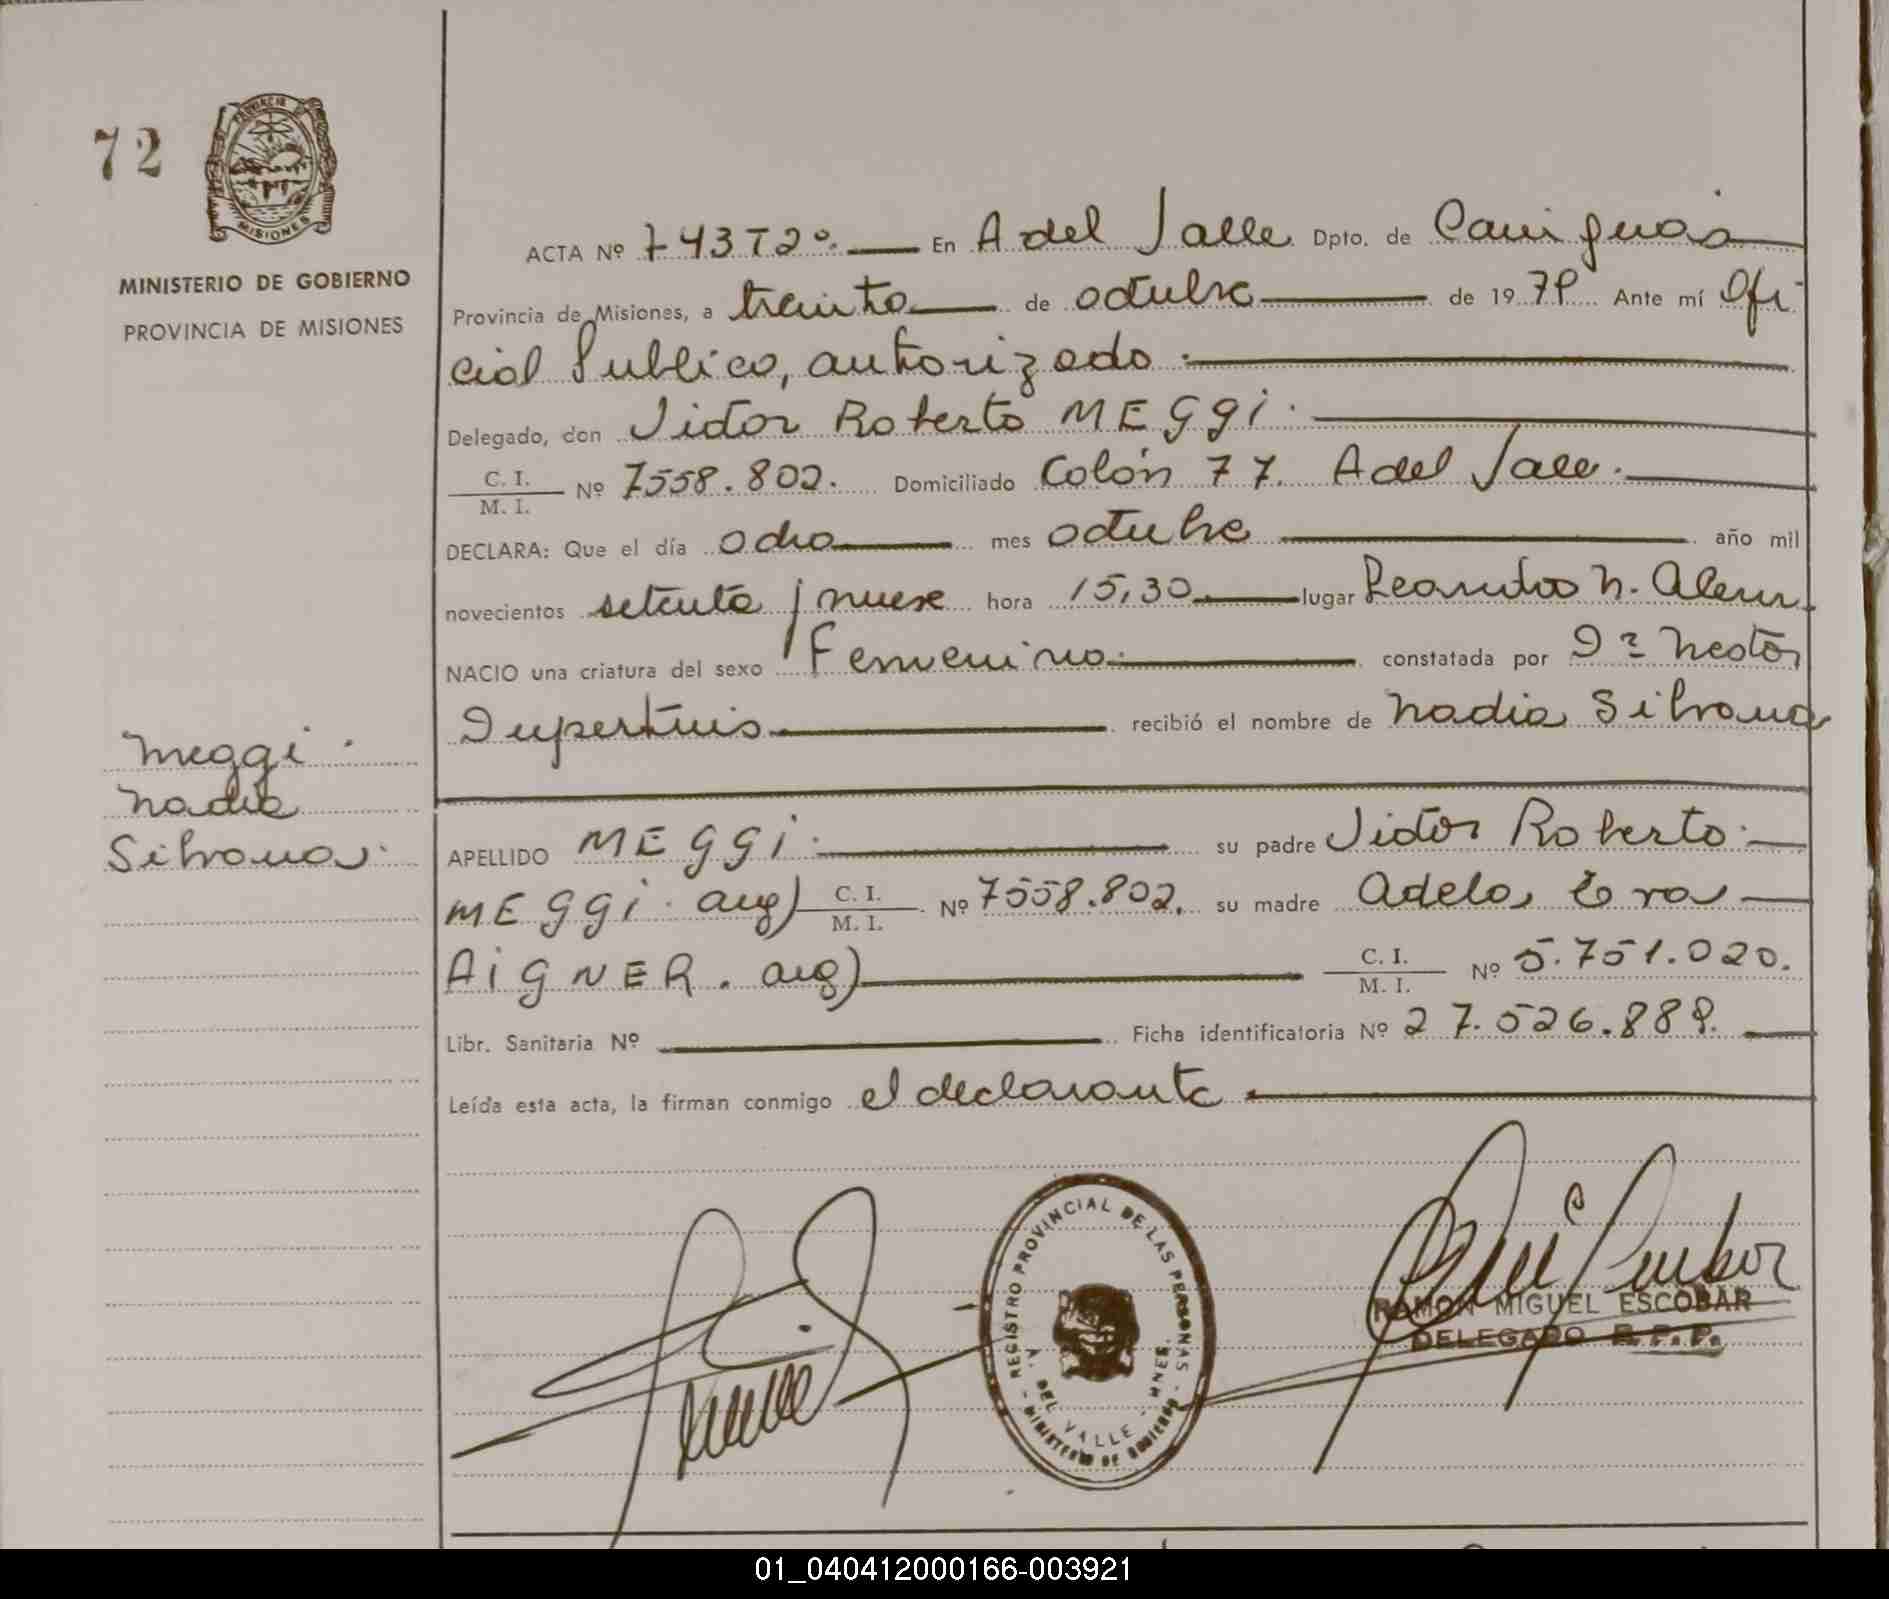 72
PROVINCIA DE
MISIONES
MINISTERIO DE GOBIERNO
PROVINCIA DE MISIONES
ACTA Nº 743T2º. En A del Valle Dpto. de Cainguás
Provincia de Misiones, a treinta de octubre de 1979 Ante mí Ofi-
cial Publico, autorizado.
Delegado, don Victor Roberto MEGGi.
C. I.
M. I. Nº 7558.802. Domiciliado Colón 77. A del Valle.
DECLARA: Que el día ocho mes octubre año mil
novecientos setenta y nueve hora 15,30 lugar Leandro N. Alem
NACIO una criatura del sexo Femenino. constatada por Dr Nestor
Dupertuis recibió el nombre de Nadia Silvana
Meggi.
Nadia
Silvana.
APELLIDO MEGGi. su padre Victor Roberto.
MEGGi. arg) C. I.
M. I. Nº 7558.802. su madre Adela Eva
AiGNER. arg) C. I.
M. I. Nº 5.751.020.
Libr. Sanitaria Nº Ficha identificatoria Nº 27.526.889.
Leída esta acta, la firman conmigo el declarante
REGISTRO PROVINCIAL DE LAS PERSONAS
A. DEL VALLE - MNES.
- MINISTERIO DE GOBIERNO -
RAMON MIGUEL ESCOBAR
DELEGADO R.P.P.
01_040412000166-003921